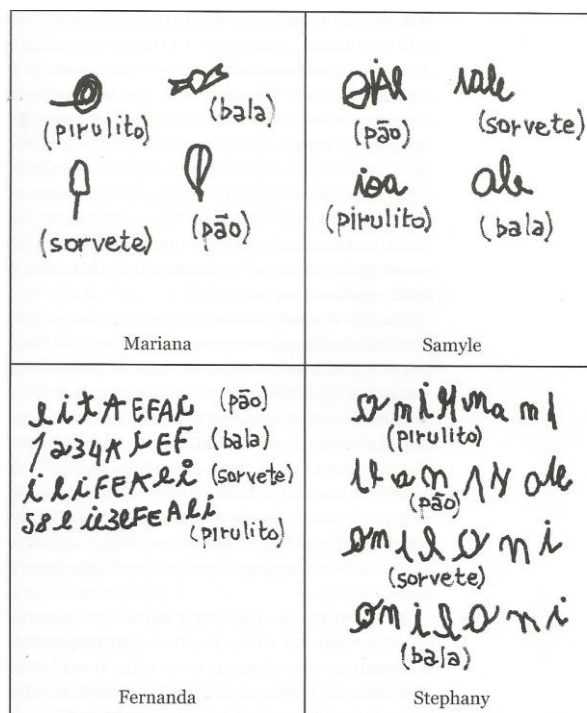 (pirulito)
(bala)
(sorvete)
(pão)
Mariana
OiAl
iale
(pão)
(sorvete)
isa
ale
(pirulito)
(bala)
Samyle
eitAEFAi (pão)
1234AiEF (bala)
iliFEAli (sorvete)
58lii3lFEALi
(pirulito)
Fernanda
(pirulito)
(pão)
omilani
(sorvete)
omilani
(bala)
Stephany